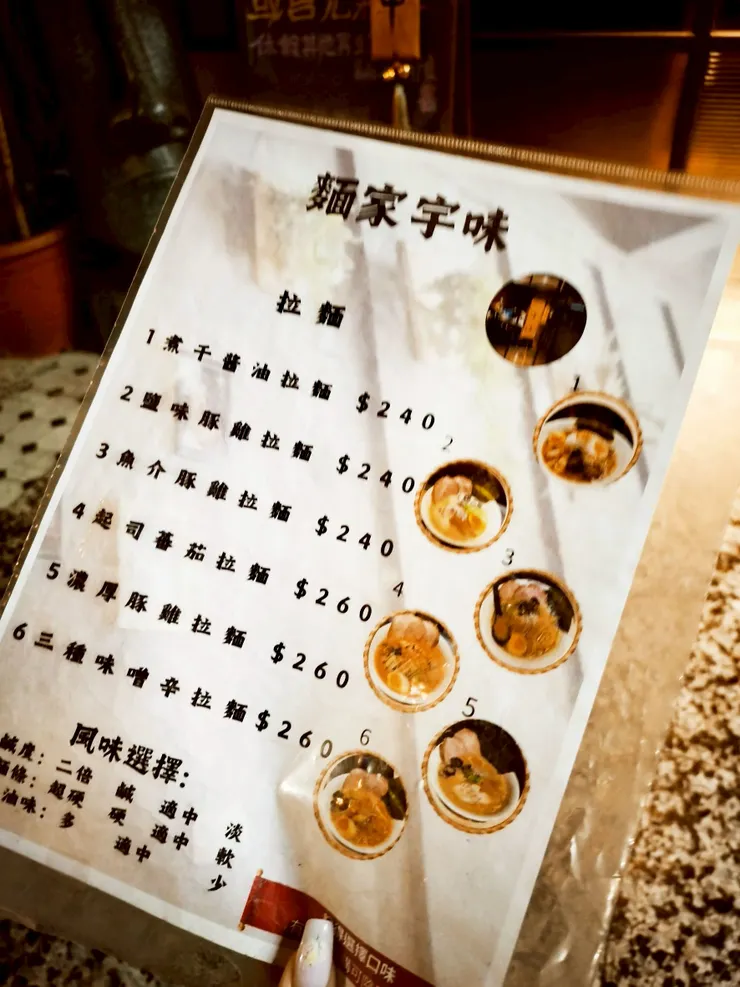 麵家宇味
拉麵
1煮干醬油拉麵 $240
2鹽味豚雞拉麵 $240
3魚介豚雞拉麵 $240
4起司蕃茄拉麵 $260
5濃厚豚雞拉麵 $260
6三種味噌辛拉麵 $260
1
2
3
4
5
6
風味選擇:
鹹度: 二倍 鹹 適中 淡
麵條: 超硬 硬 適中 軟
油味: 多 適中 少
選擇口味